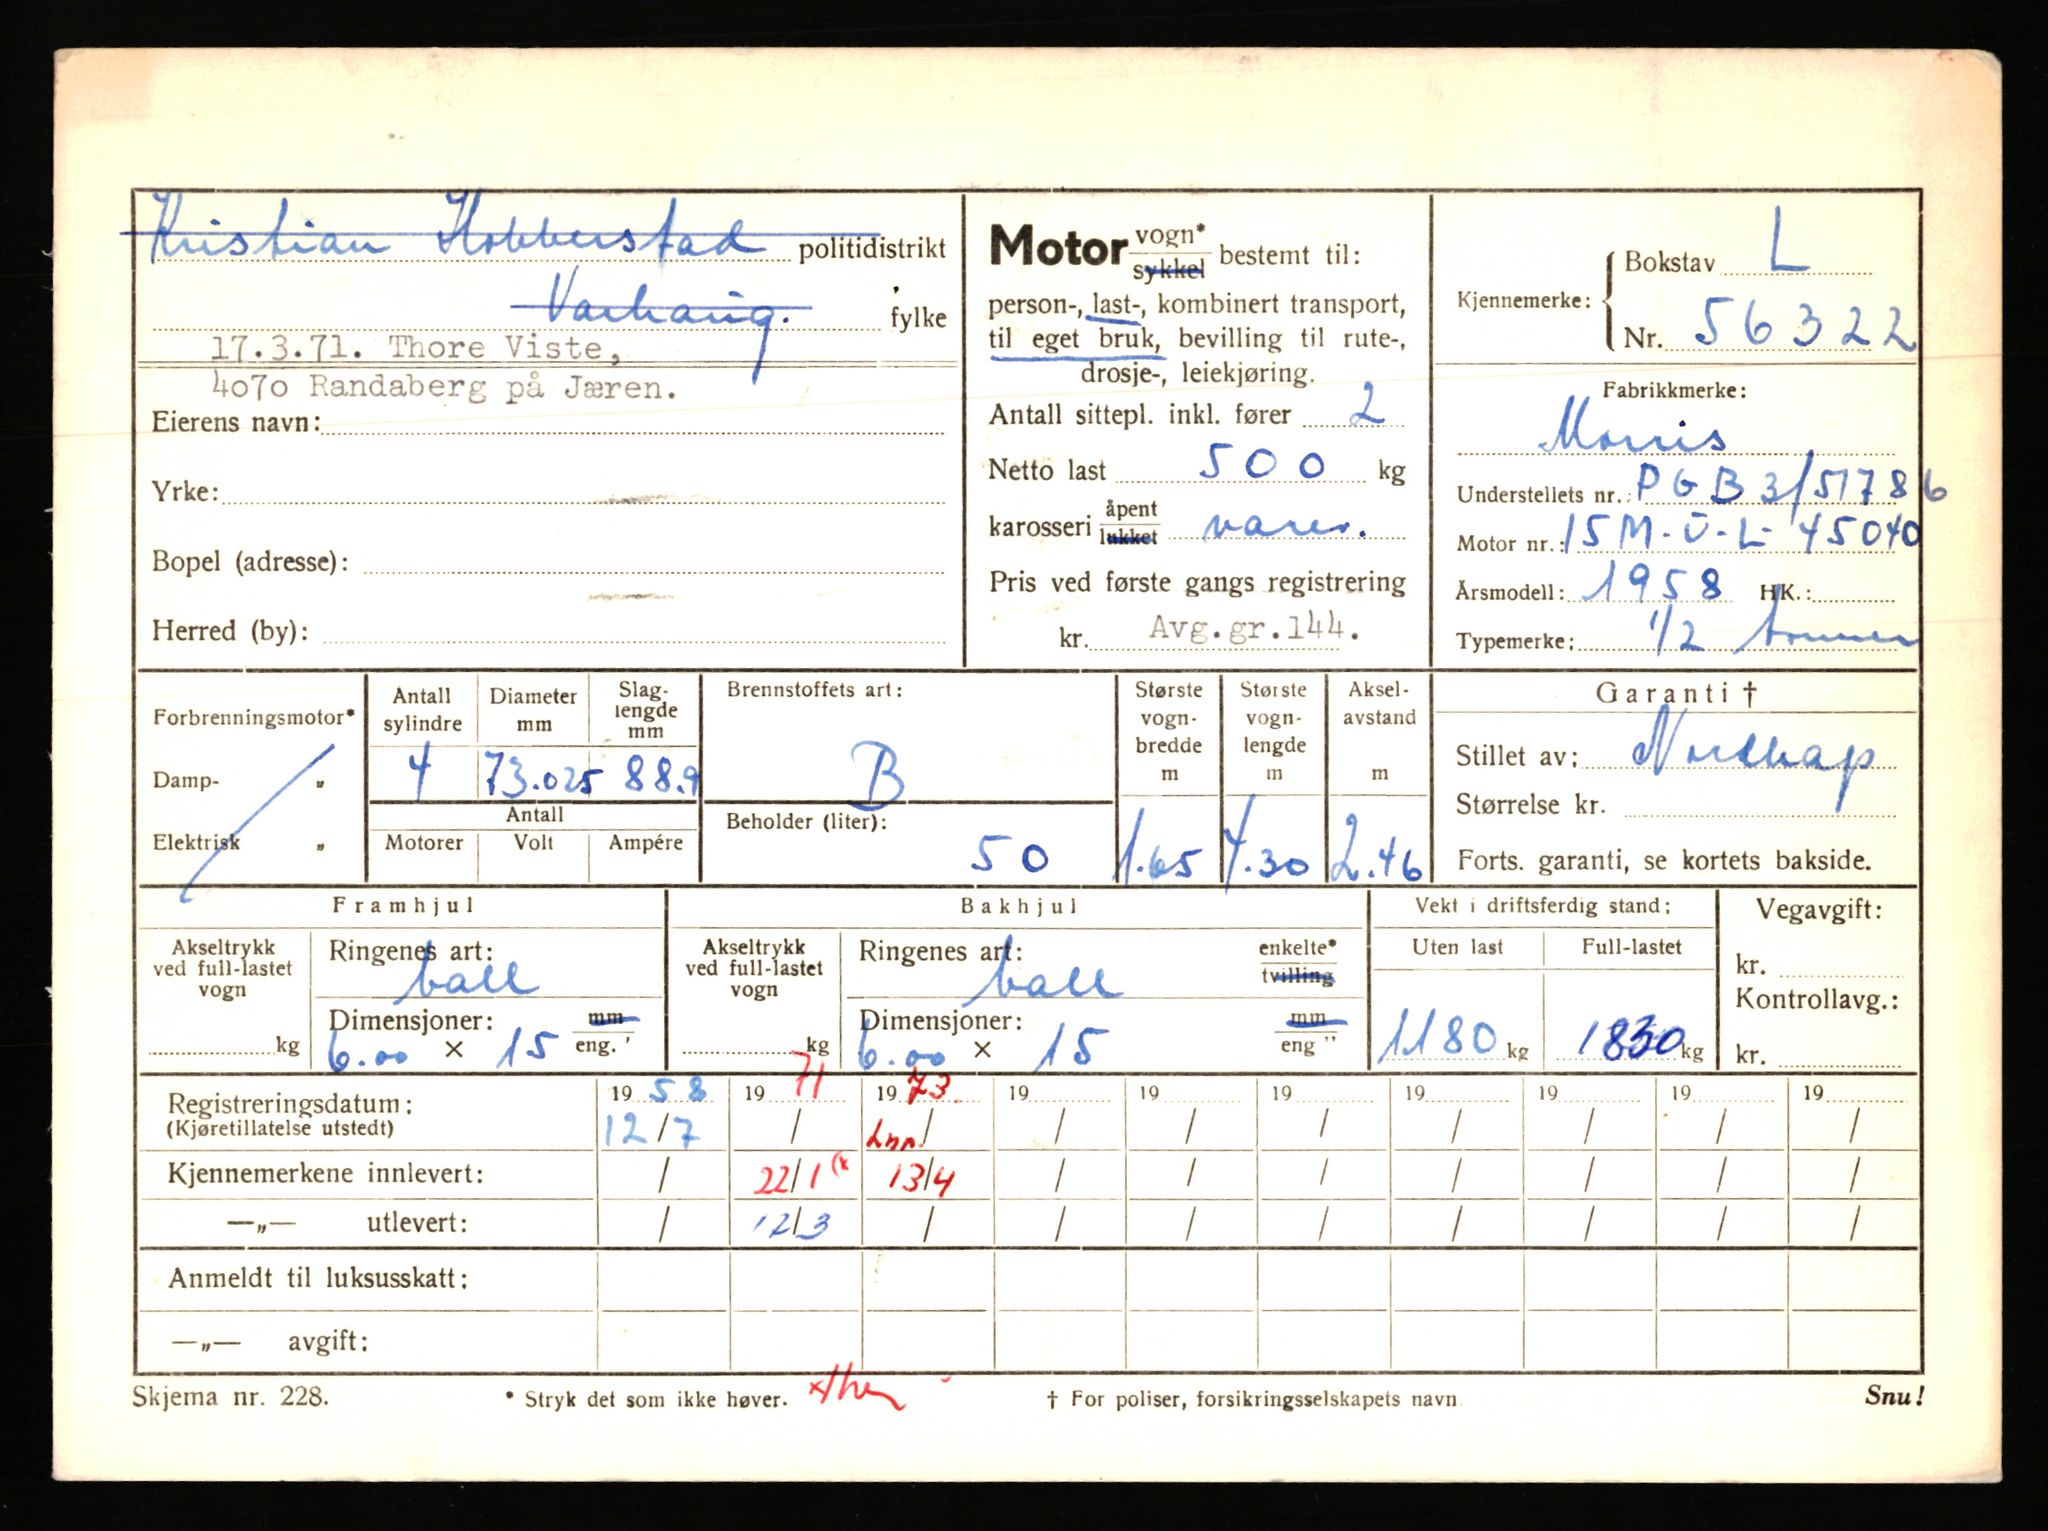 Kristian Hobberstad politidistrikt
Varhaug. fylke
17.3.71. Thore Viste,
4070 Randaberg på Jæren.
Eierens navn:
Yrke:
Bopel (adresse):
Herred (by):
Motor vogn* sykkel bestemt til:
person-, last-, kombinert transport,
til eget bruk, bevilling til rute-,
drosje-, leiekjøring.
Antall sittepl. inkl. fører 2
Netto last 500 kg
karosseri åpent lukket varev.
Pris ved første gangs registrering
kr. Avg.gr.144.
Kjennemerke:
Bokstav L
Nr. 56322
Fabrikkmerke:
Morris
Understellets nr.: PGB3/51786
Motor nr.: 15M-U-L-45040
Årsmodell: 1958 HK.:
Typemerke: 1/2 tonner
Forbrenningsmotor*
Damp- „
Elektrisk „
Antall sylindre
4
Diameter mm
73.025
Slag-lengde mm
88.9
Antall
Motorer Volt Ampére
Brennstoffets art:
B
Beholder (liter):
50
Største vogn-bredde m
1.65
Største vogn-lengde m
4.30
Aksel-avstand m
2.46
Garanti †
Stillet av: Nordkap
Størrelse kr.
Forts. garanti, se kortets bakside.
Framhjul
Akseltrykk ved full-lastet vogn
kg
Ringenes art:
ball
Dimensjoner: mm
6.00 × 15 eng. "
Bakhjul
Akseltrykk ved full-lastet vogn
kg
Ringenes art: enkelte*
ball tvilling
Dimensjoner: mm
6.00 × 15 eng "
Vekt i driftsferdig stand:
Uten last Full-lastet
1180 kg 1830 kg
Vegavgift:
kr.
Kontrollavg.:
kr.
Registreringsdatum: 19 58 19 71 19 73. 19 19 19 19 19 19 19
(Kjøretillatelse utstedt) 12/7 / Lnr. / / / / / / / /
Kjennemerkene innlevert: / 22/1 (x 13/4 / / / / / / /
—„— utlevert: / 12/3 / / / / / / / /
Anmeldt til luksusskatt:
—„— avgift:
Skjema nr. 228.
* Stryk det som ikke høver.
† For poliser, forsikringsselskapets navn
Snu!